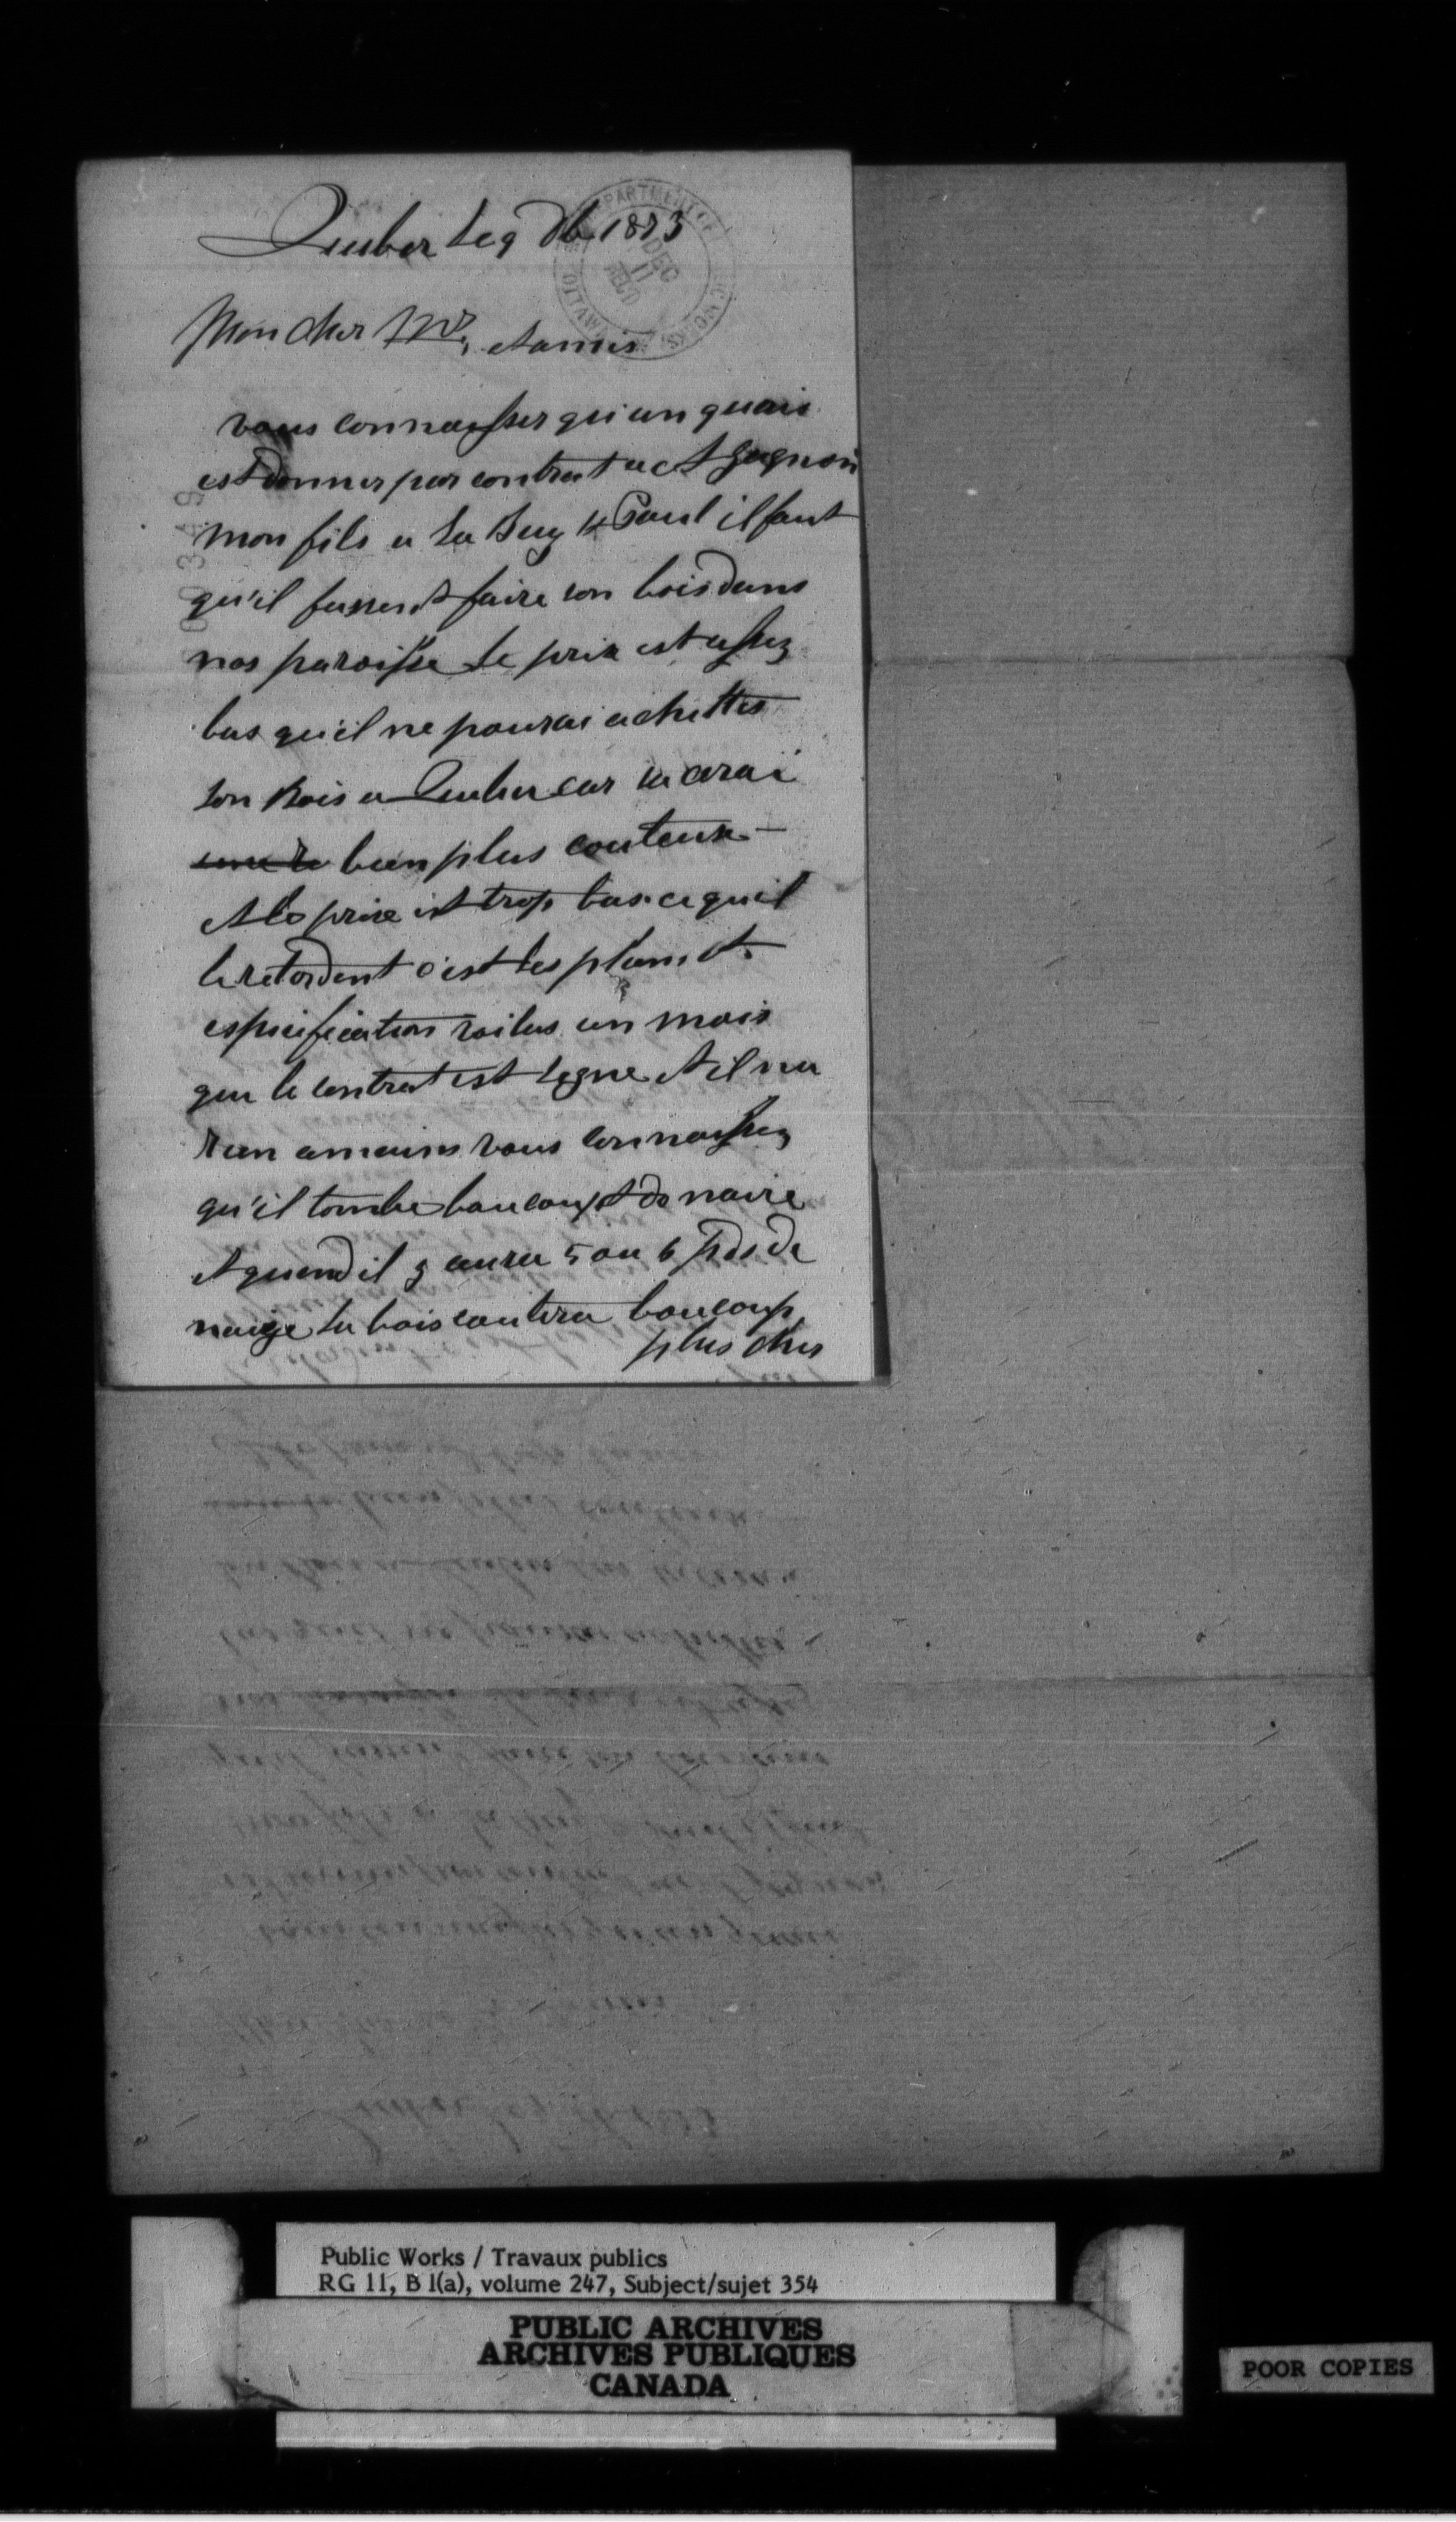 Quebec le 9 Db 1873
DEPARTMENT OF PUBLIC WORKS
DEC
11
REC'D
OTTAWA
Mon cher Mr, et amis
vous connaisser qu'un quais
est donner par contrat a et gagnon
mon fils a La Bay St Paul il faut
qu'il fassent faire son bois dans
nos paroisse Le prix est assez
bas qu'il ne pourai achetter
son Bois a Quebec car sa crai
bien plus couteux
et le prix est trop bas ce qu'il
le retardent c'est les plans et
espicification voilas un mois
que le contrat est signe et il na
rien amains vous connaissez
qu'il tombe boucoupt de naire
et quand il y aura 5 ou 6 pids de
naige La bois coutera boucoup
plus cher
Public Works / Travaux publics
RG 11, B 1(a), volume 247, Subject/sujet 354
PUBLIC ARCHIVES
ARCHIVES PUBLIQUES
CANADA
POOR COPIES